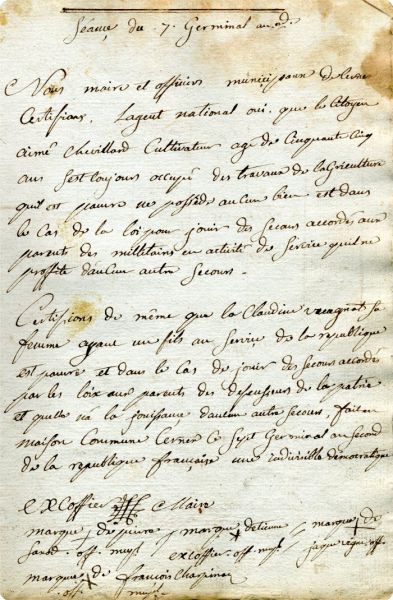 Séance du 7. Germinal an 2d.
Nous maire et officiers municipaux de
Certifions, Lagent national oui, que le Citoyen
aimé Chevillard Cultivateur agé de Cinquante Cinq
ans Sest toujours occupé des travaux de lagriculture
quil est pauvre ne possede aucun bien est dans
le Cas de la loi pour jouir des Secours accordés aux
parents des militaires en activité de Service quil ne
proffite daucun autre Secours.
Certifions de même que la Claudine sa
femme ayant un fils au Service de la republique
est pauvre et dans le Cas de jouir des Secours accordés
par les loix aux parents des deffenseurs de la patrie
et quelle na la jouissance daucun autre Secours, fait en
maison Commune Cerner Ce Sept Germinal an Second
de la republique française une indivisible démocratique
excoffier Maire
marque de pierre marque detienne marque de
off. mupl excoffier off. mupl jaque off.
marque de francois Charpine
off. mupl